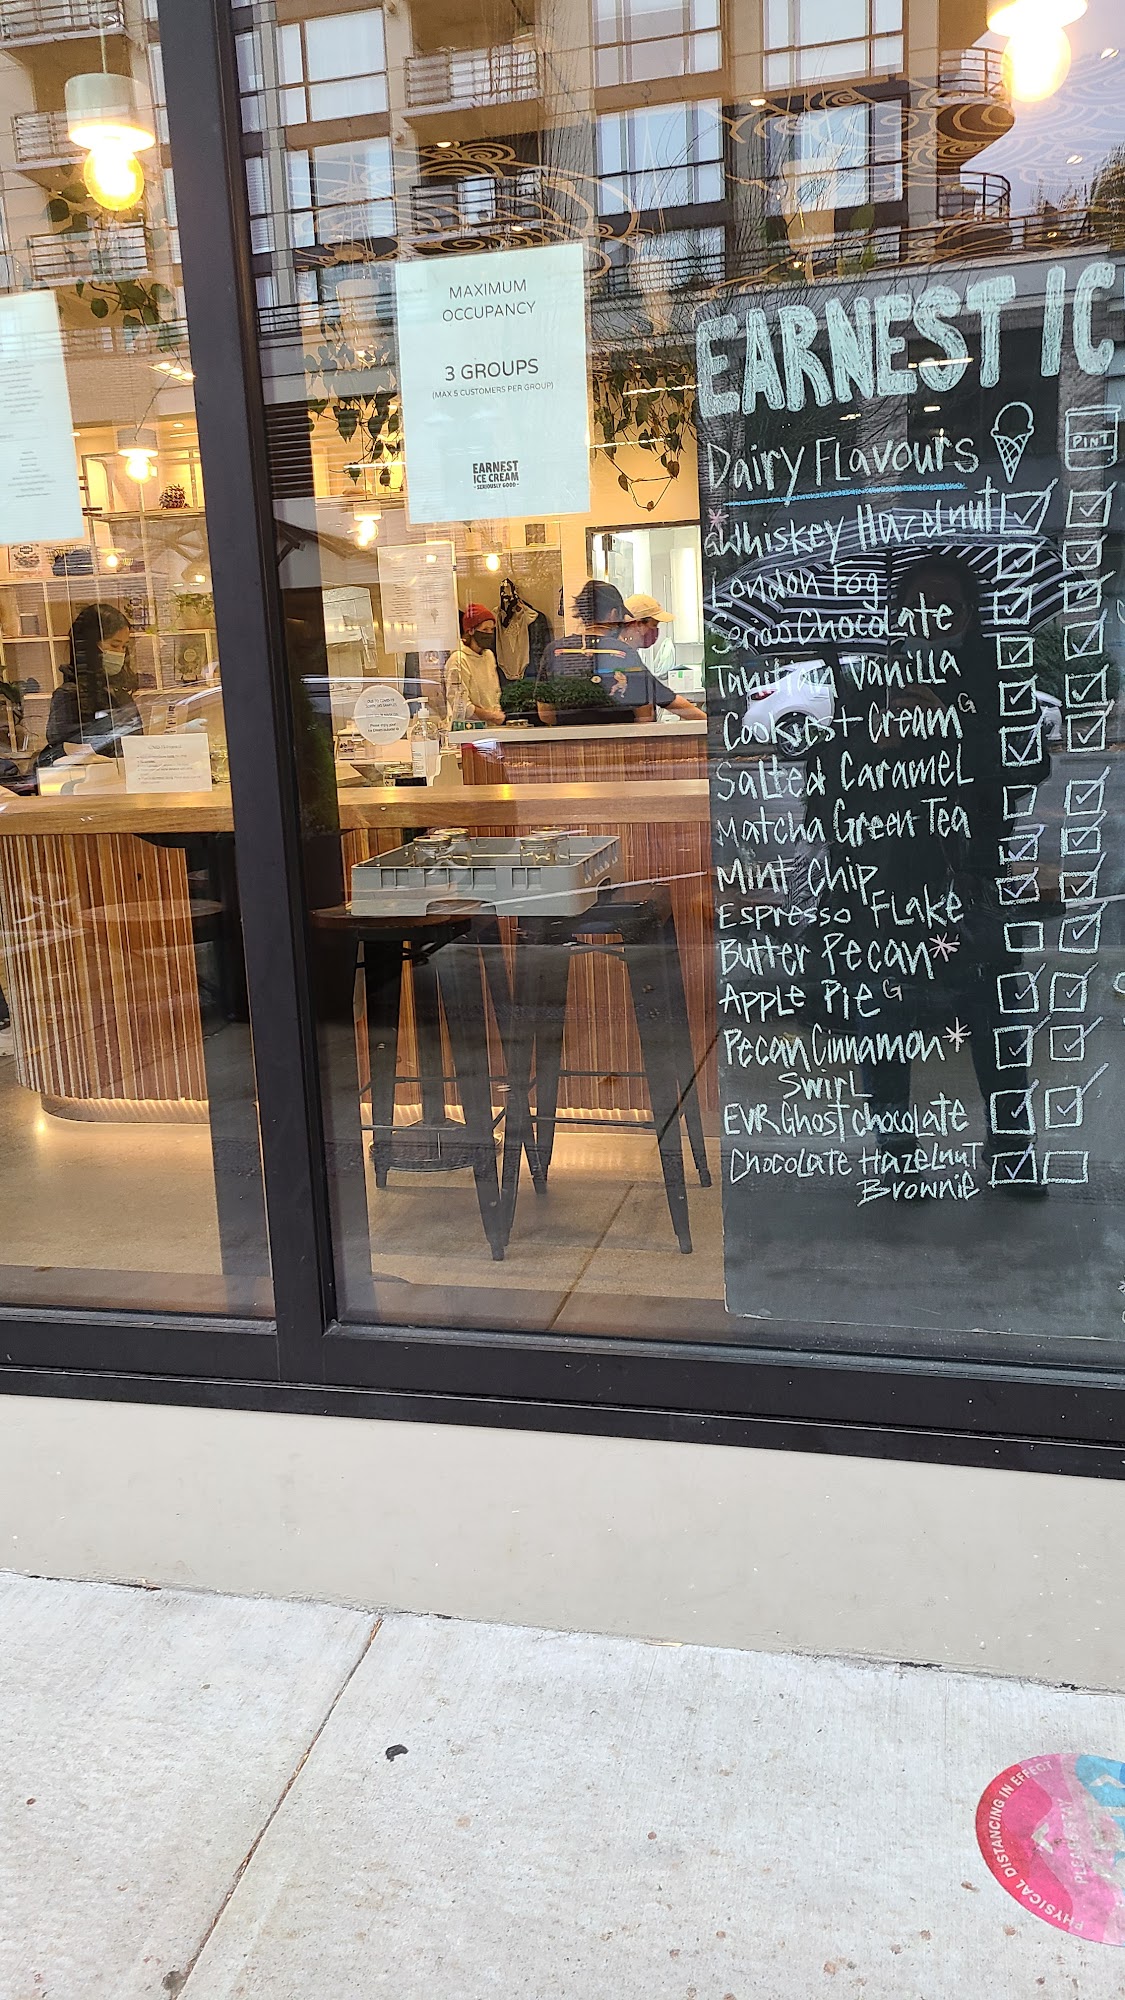 MAXIMUM
OCCUPANCY
3 GROUPS
(MAX 5 CUSTOMERS PER GROUP)
EARNEST
ICE CREAM
·SERIOUSLY GOOD·
EARNEST IC
Dairy Flavours
PINT
*GWhiskey Hazelnut
London Fog
Serious Chocolate
Tahitian Vanilla
Cookies + Cream G
Salted Caramel
Matcha Green Tea
Mint Chip
Espresso Flake
Butter Pecan*
Apple Pie G
Pecan Cinnamon*
Swirl
EVR Ghost chocolate
Chocolate Hazelnut
Brownie
PHYSICAL DISTANCING IN EFFECT